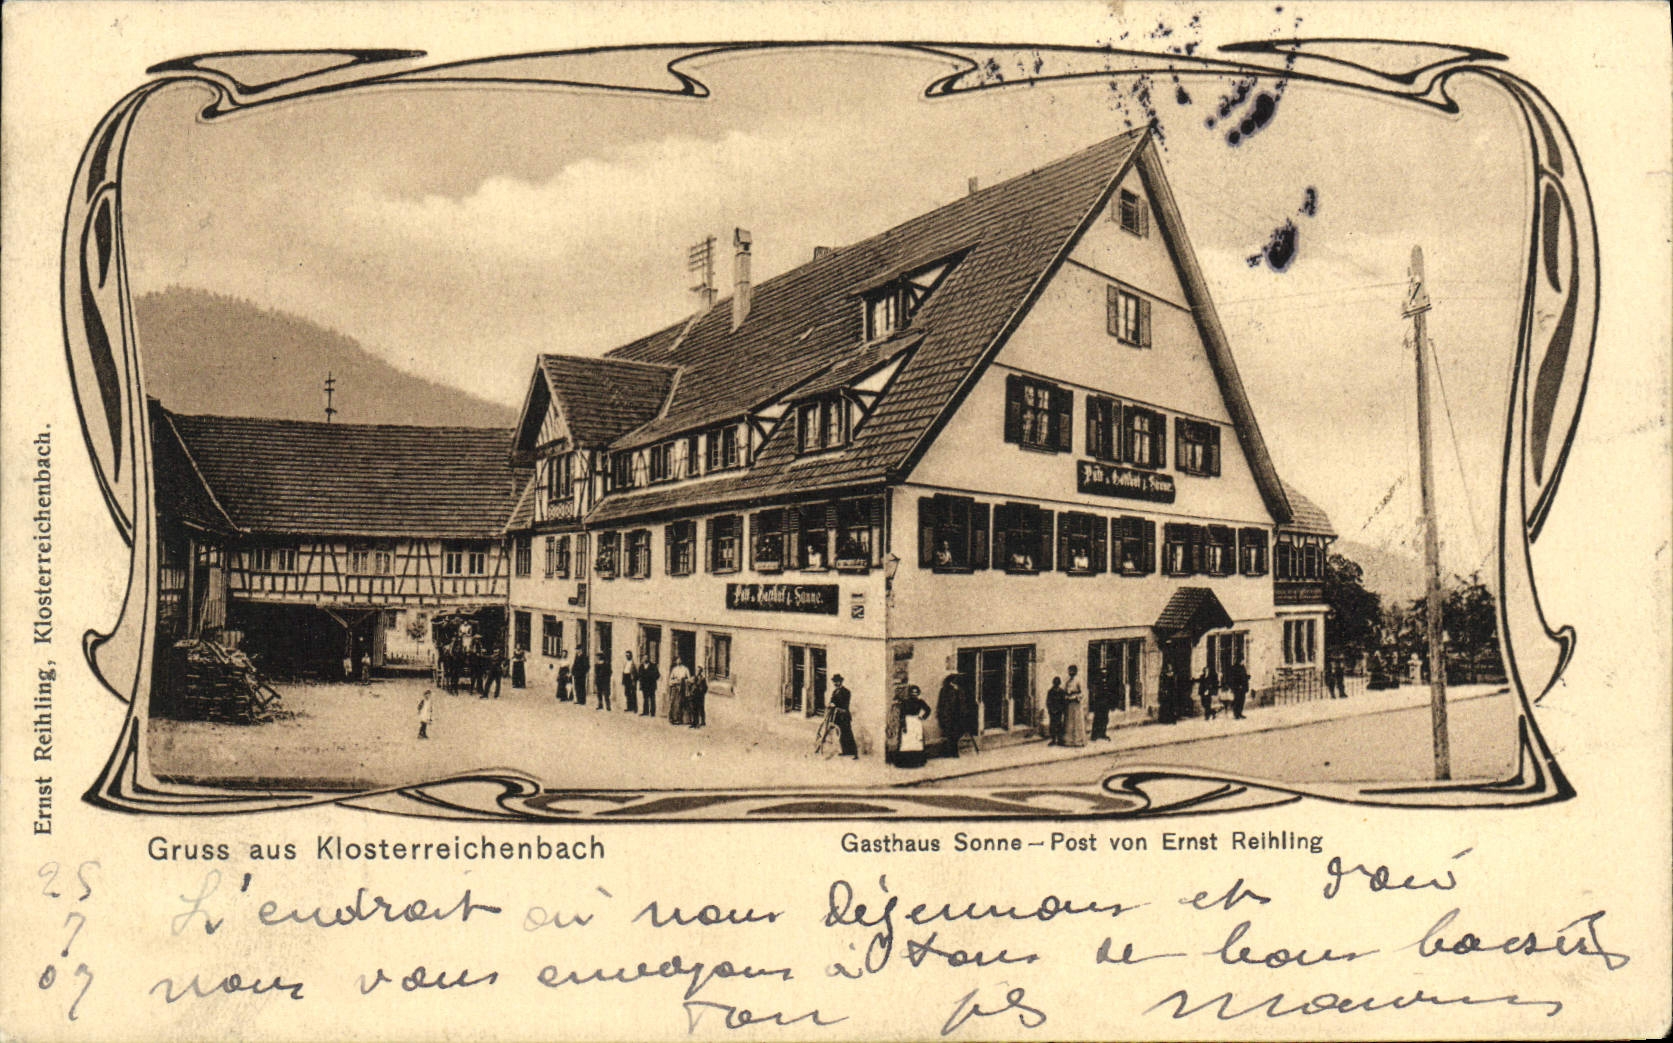 Post u. Gasthof z. Sonne.
Post u. Gasthof z. Sonne.
Ernst Reihling, Klosterreichenbach.
Gruss aus Klosterreichenbach
Gasthaus Sonne – Post von Ernst Reihling
25
7
07
L'endroit où nous déjeunons et d'où
nous vous envoyons à tous de bons baisers
Ton fils Maurice